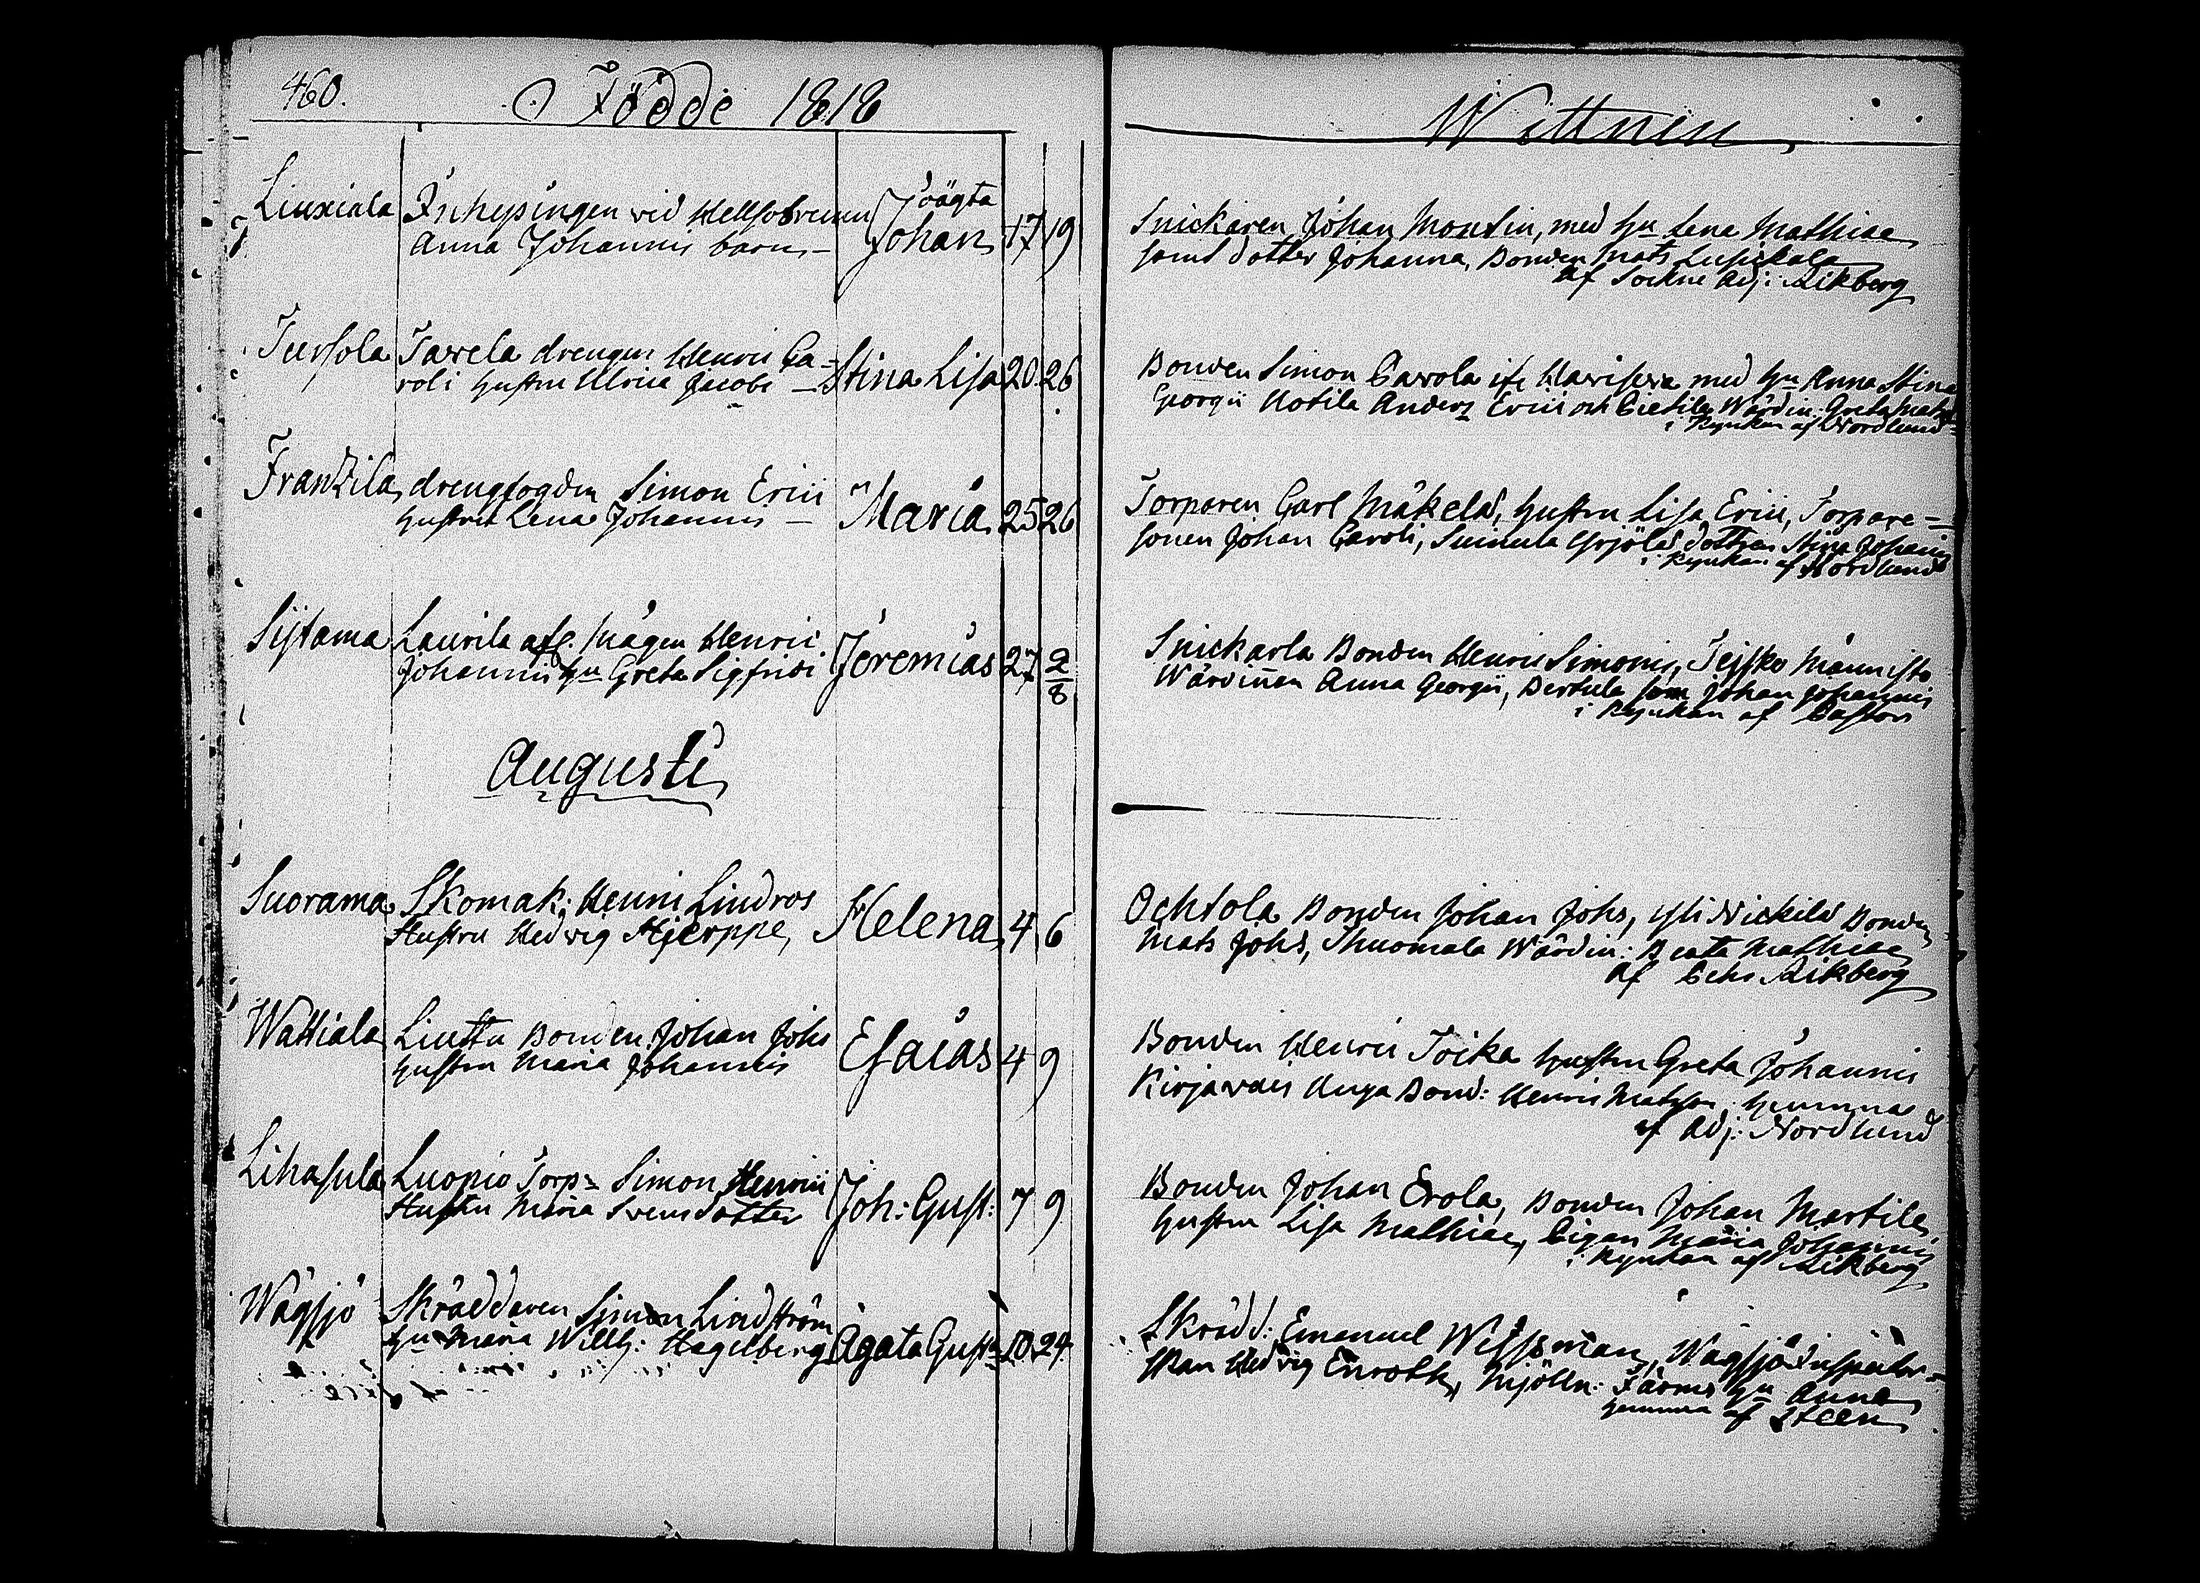 460.
Födde 1818
Wittnen
Liuxiala
Inhysingen vid Hellsobrunn
Anna Johannis barn
Oägta
Johan
17 19
Snickaren Johan Monsin, med hu Lena Mathiae
samt dotter Johanna, Bonden Mats Lusickala
af Sockne Adj: Aikberg
Tursola
Tawela drengen Henric Ca-
roli hustru Ulrica Jacobs
Stina Lisa
20 26
Bonden Simon Carola med hu Anna Stina
Georgii Kotila Anders Erici och Cietila Wärdin: Greta Mats
i Kyrkan af Nordlund
Franzila
drengfogden Simon Erici
hustru Lena Johannis
Maria
25 26
Torparen Carl Mäkelä, hustru Lisa Erici, Torpare-
sonen Johan Caroli, Suinula Yrjölä dottren Stina Johannis
i Kyrkan af Nordlund
Sijtama
Laurila afl. Mågen Henric
Johannis hu Greta Sigfridi
Jeremias
27 2/8
Snickarla Bonden Henric Simonis, Teisko Männistö
Wärdinnan Anna Georgii, Pertula son Johan Johannis
i Kyrkan af Pastor
Augusti
Suorama
Skomak: Henric Lindros
Hustru Hedvig Hjerppe,
Helena
4 6
Ochtola Bonden Johan Johs, Yli Nickilä Bonden
Mats Johs, Thuomala Wärdin: Beata Mathiae
af Aikberg
Wattiala
Liuttu Bonden Johan Johs
hustru Maria Johannis
Esaias
4 9
Bonden Henric Toika hustru Greta Johannis
Kirjavais Unga Bond: Henric Matsson, hemma
af Adj: Nordlund
Lihasula
Luopio Torp= Simon Henrici
Hustru Maria Svensdotter
Joh: Gust:
7 9
Bonden Johan Erola, Bonden Johan Martila
hustru Lisa Mathiae, Pigan Maria Johannis
i Kyrkan af Aikberg
Wägsjö
Skräddaren Simon Lindström
hu Maria Willh: Hagelberg
Agata Gusta
10 24
Skrädd: Emanuel Wessman, Wägsjö Inspektr-
skan Hedvig Enroth, Mjölln: Färms hu Anna
hemma af Steen